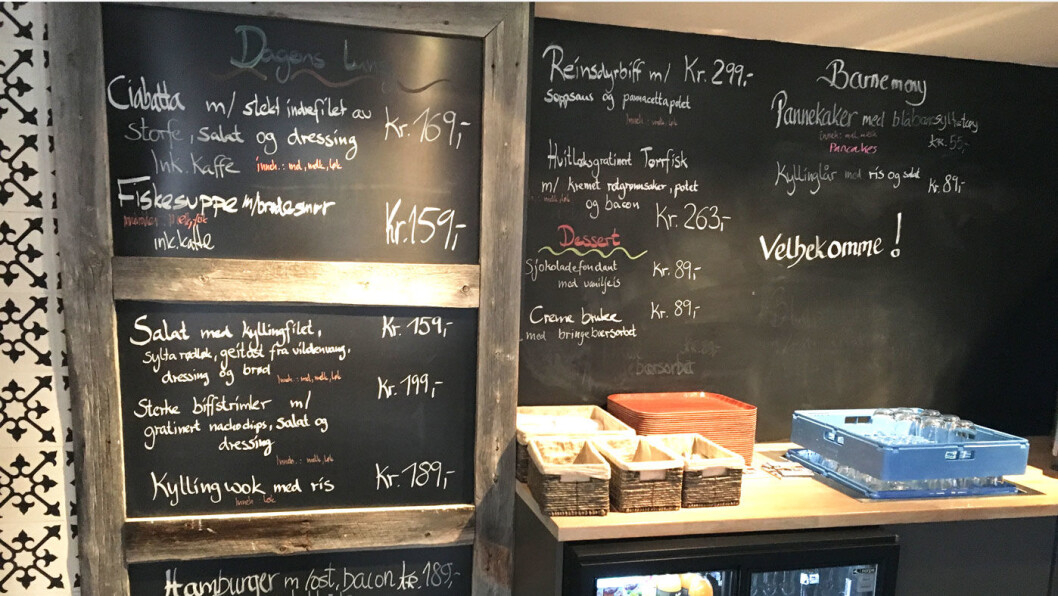 Dagens lun
Ciabatta m/ stekt indrefilet av
storfe, salat og dressing
Ink. kaffe
Inneh.: mel, melk, løk
Kr. 169,-
Fiskesuppe m/brød&smør
ink. kaffe
Kr. 159,-
Salat med kyllingfilet,
sylta rødløk, geitost fra vildenvang,
dressing og brød
Inneh.: mel, melk, løk
Kr. 159,-
Sterke biffstrimler m/
gratinert nachodips, salat og
dressing
Inneh.: melk, løk
Kr. 199,-
Kylling wok med ris
Inneh.: løk
Kr. 189,-
Hamburger m/ost, bacon kr. 189,-
Reinsdyrbiff m/ Kr. 299,-
soppsaus og pannacettapotet
Inneh.: melk, løk
Hvitløksgratinert Tørrfisk
m/ kremet rotgrønnsaker, potet
og bacon
melk, løk
Kr. 263,-
Dessert
Sjokoladefondant
med vaniljeis
Kr. 89,-
Creme brulee
med bringebærsorbet
Kr. 89,-
bærsorbet
Barnemeny
Pannekaker med blåbærsyltetøy
Inneh.: mel, melk
Pancakes
kr. 55,-
Kyllinglår med ris og salat
kr. 89,-
Velbekomme!